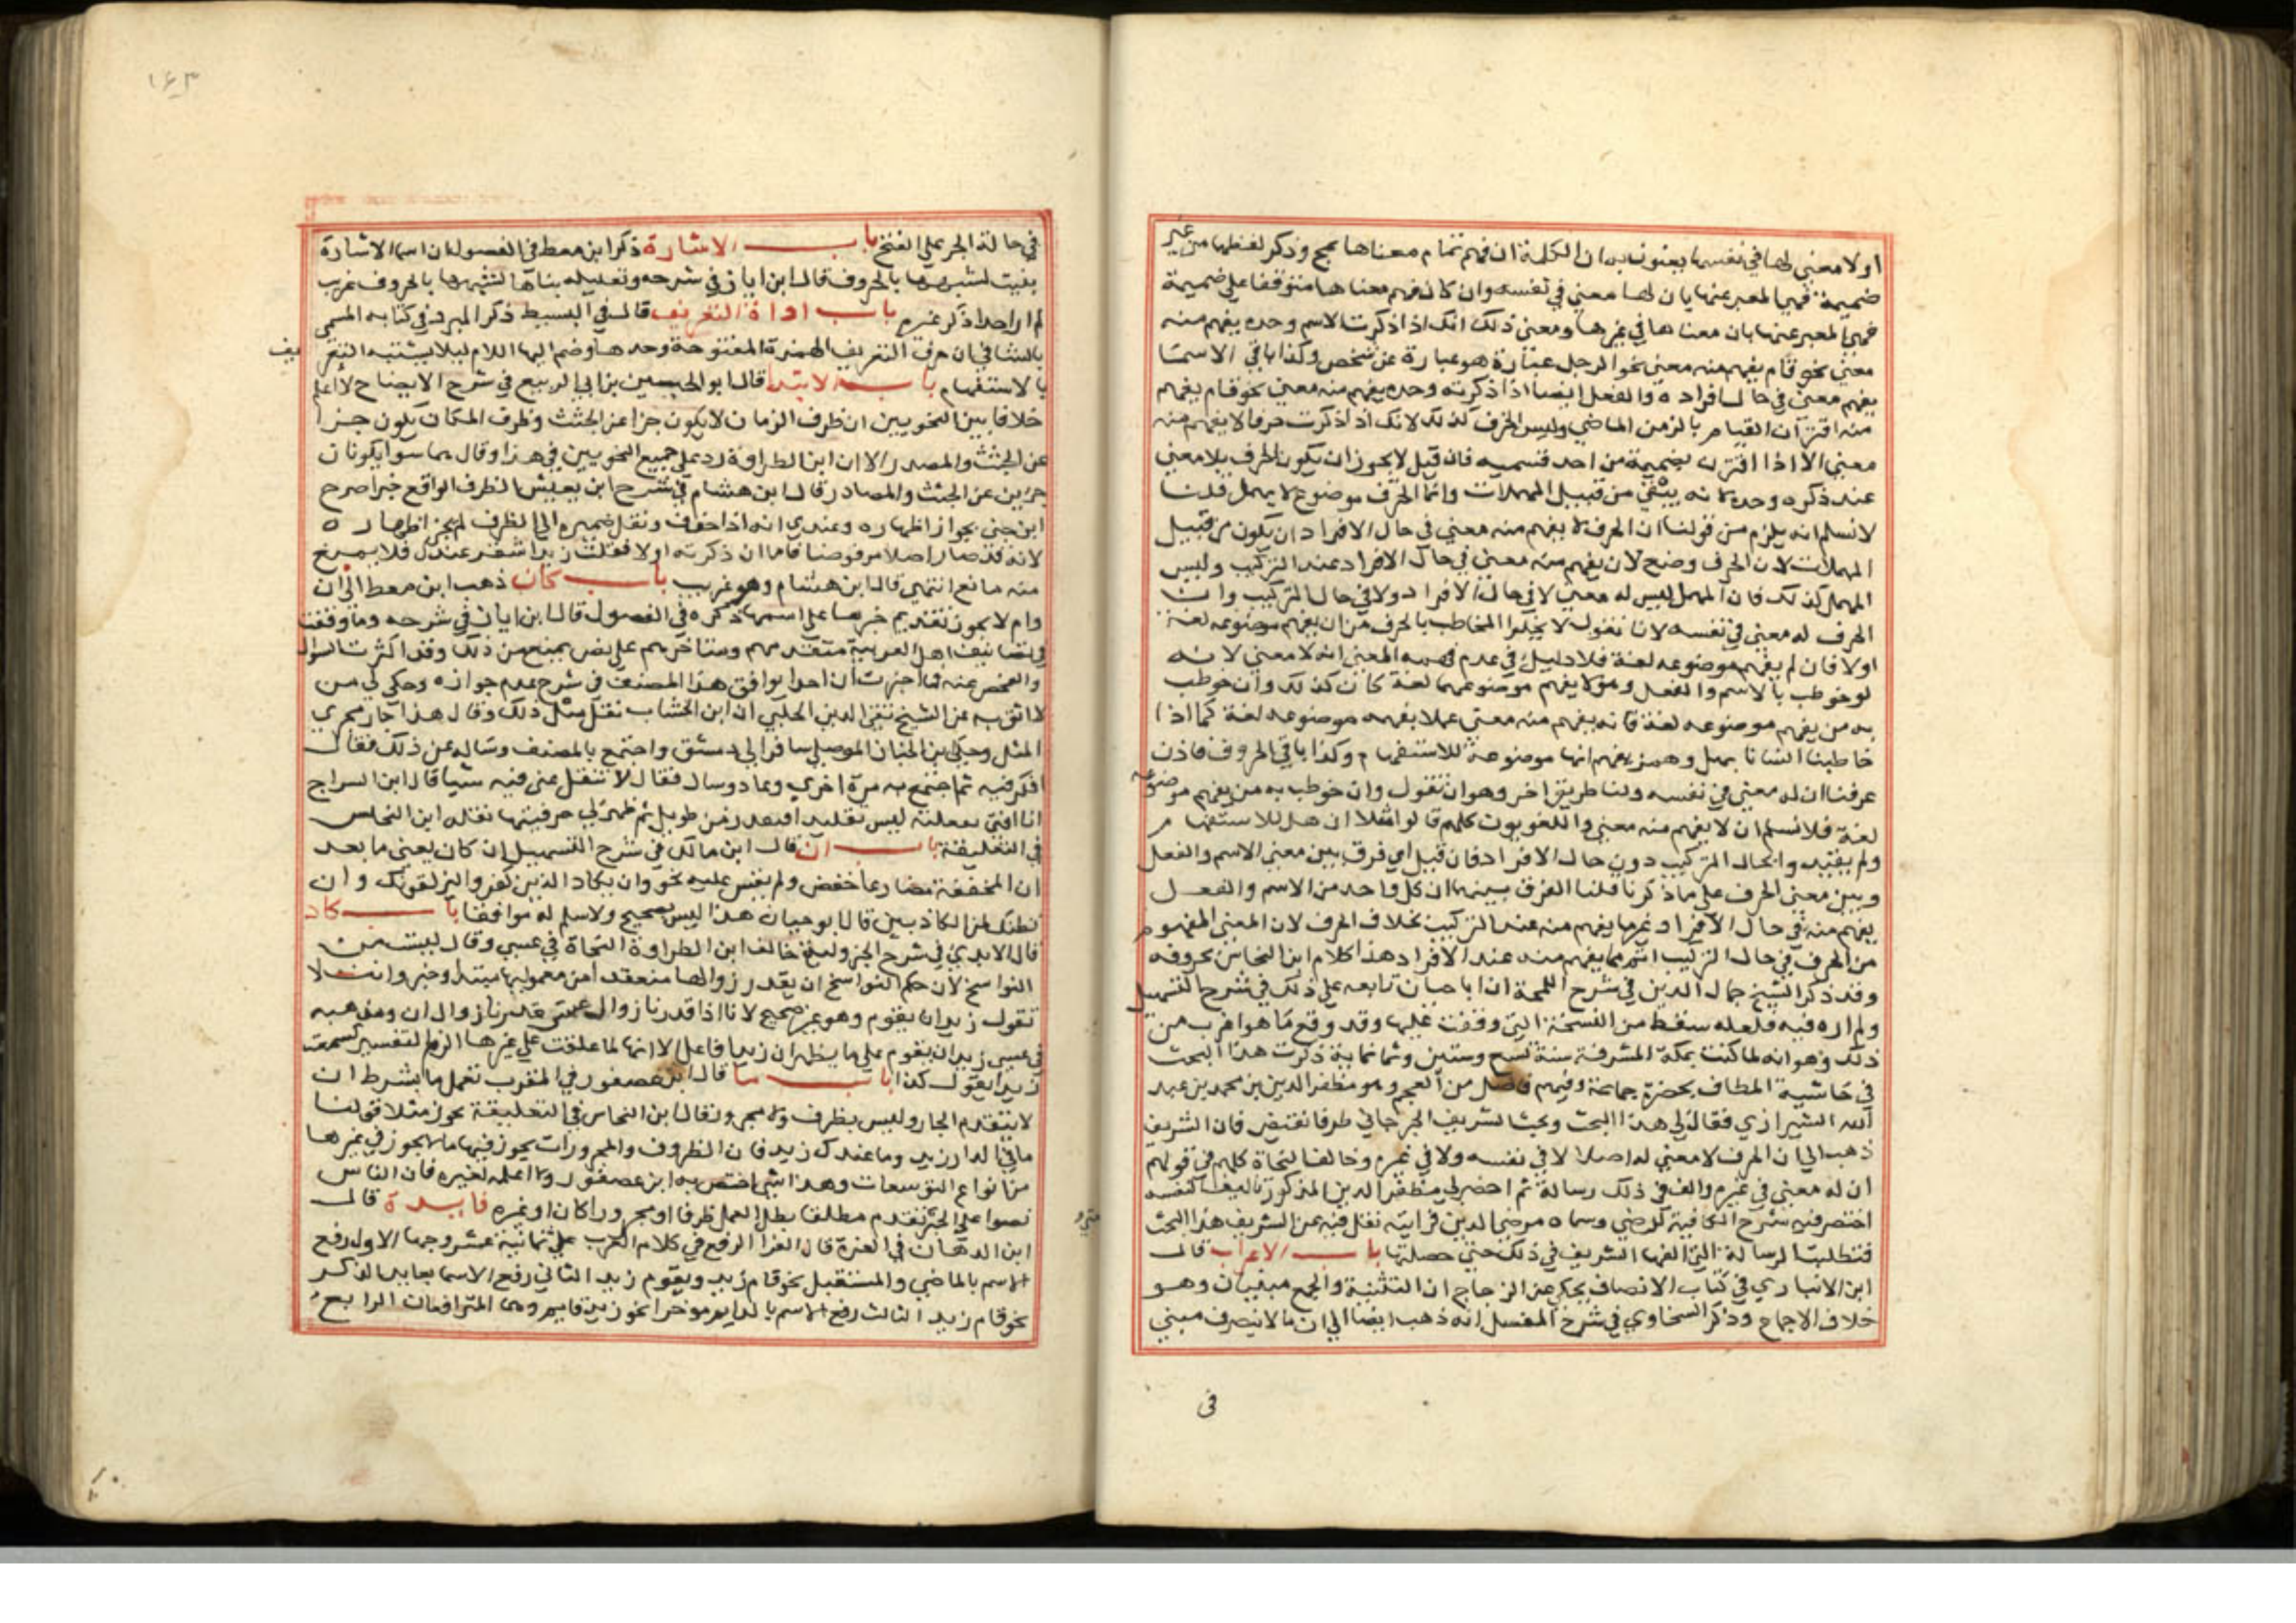 او لا معنى لها في نفسها يعنون به ان الكلمة ان فهم تمام معناها بمجرد ذكر لفظها من غير
ضميمة فهي المعبر عنها بان لها معنى في نفسه وان كان فهم معناها متوقفا على ضميمة
فهي المعبر عنها بان معناها في غيرها ومعنى ذلك انك اذا ذكرت الاسم وحده يفهم منه
معنى نحو قام يفهم منه معنى نحو الرجل عبارة هو عبارة عن شخص وكذا باقي الاسما
يفهم معنى في حال افراده والفعل ايضا اذا ذكرته وحده يفهم منه معنى نحو قام يفهم
منه اقتران القيام بالزمن الماضي وليس الحرف كذلك لانك اذا ذكرت حرفا لا يفهم منه
معنى الا اذا اقترن بضميمة من احد قسميه فان قيل لا يجوز ان يكون الحرف بلا معنى
عند ذكره وحده لانه يبقى من قبيل المهملات وانما الحرف موضوع لا مهمل قلنا
لا نسلم انه يلزم من قولنا ان الحرف لا يفهم منه معنى في حال الافراد ان يكون من قبيل
المهملات لان الحرف وضع لان يفهم منه معنى في حال الافراد عند التركيب وليس
المهمل كذلك فان المهمل ليس له معنى لا في حال الافراد ولا في حال التركيب وان
الحرف له معنى في نفسه لانا نقول لا يخلوا المخاطب بالحرف من ان يفهم موضوعه لغة
اولا فان لم يفهم موضوعه لغة فلا دليل في عدم فهمه المعنى انه لا معنى لانه
لو خوطب بالاسم والفعل وهو لا يفهم موضوعهما لغة كان كذلك وان خوطب
به من يفهم موضوعه لغة فانه يفهم منه معنى عملا بفهمه موضوعه لغة كما اذا
خاطبنا انسانا بهل وهمزة يفهم انها موضوعة للاستفهام وكذا باقي الحروف فاذن
عرفنا ان له معنى في نفسه ولنا طريق اخر وهو ان نقول وان خوطب به من يفهم موضوعه
لغة فلا نسلم ان لا يفهم منه معنى واللغويون كلهم قالوا مثلا ان هل للاستفهام
ولم يقيدوا بحال التركيب دون حال الافراد فان قيل اي فرق بين معنى الاسم والفعل
وبين معنى الحرف على ما ذكرنا قلنا الفرق بينهما ان كل واحد من الاسم والفعل
يفهم منه في حال الافراد غير ما يفهم منه عند التركيب بخلاف الحرف لان المعنى المفهوم
من الحرف في حال التركيب اتم مما يفهم منه عند الافراد هذا كلام ابن النحاس بحروفه
وقد ذكر الشيخ جمال الدين في شرح اللمحة ان ابا حيان تابعه على ذلك في شرح التسهيل
ولم اره فيه فلعله سقط من النسخة التي وقفت عليها وقد وقع ما هو اغرب من
ذلك وهو انه لما كنت بمكة المشرفة سنة تسع وستين وثمانماية ذكرت هذا البحث
في حاشية المطاف بحضرة جماعة وفيهم فاضل من العجم وهو مظفر الدين بن محمد بن عبد
الله الشيرازي فقال لي هذا البحث وبحث الشريف الجرجاني طرفا نقيض فان الشريف
ذهب الى ان الحرف لا معنى له اصلا لا في نفسه ولا في غيره وخالف النحاة كلهم في قولهم
ان له معنى في غيره والف في ذلك رسالة ثم احضر لي مظفر الدين المذكور تاليفا لنفسه
اختصر فيه شرح الكافية للرضي وسماه مرضي الدين فرايته نقل فيه عن الشريف هذا البحث
فتطلبت الرسالة التي الفها الشريف في ذلك حتى حصلتها باب الاعراب قال
ابن الانباري في كتاب الانصاف يحكى عن الزجاج ان التثنية والجمع مبنيان وهو
خلاف الاجماع وذكر السخاوي في شرح المفصل انه ذهب ايضا الى ان ما لا ينصرف مبني
في
١٦٣
في حالة الجر على الفتح باب الاشارة ذكر ابن معط في الفصول ان اسما الاشارة
بنيت لشبهها بالحروف قال ابن اياز في شرحه وتعليله بناها لشبهها بالحروف غريب
لم ار احدا ذكر غيره باب اداة التعريف قال في البسيط ذكر المبرد في كتابه المسمى
بالشافي ان حرف التعريف الهمزة المفتوحة وحدها وضم اليها اللام ليلا يشتبه التعريف
بالاستفهام باب الابتدا قال ابو الحسين بن ابي الربيع في شرح الايضاح لا اعلم
خلافا بين النحويين ان ظرف الزمان لا يكون خبرا عن الجثث وظرف المكان يكون خبرا
عن الجثث والمصدر الا ان ابن الطراوة رد على جميع النحويين في هذا وقال هما سوا يكونان
خبرين عن الجثث والمصادر قال ابن هشام في شرح ابن يعيش الظرف الواقع خبرا صرح
ابن جني بجواز اظهاره وعندي انه اذا حذف ونقل ضميره الى الظرف لم يجز اظهاره
لانه قد صار اصلا مرفوضا فاما ان ذكرته اولا فقلت زيد استقر عندك فلا يمنع
منه مانع انتهى قال ابن هشام وهو غريب باب كان ذهب ابن معط الى ان
دام لا يجوز تقديم خبرها على اسمها ذكره في الفصول قال ابن اياز في شرحه وما وقفت
في تصانيف اهل العربية متقدمهم ومتاخرهم على نص يمنع من ذلك وقد اكثرت السوال
والفحص عنه فما اخبرت ان احدا يوافق هذا المصنف في شرح عدم جوازه وحكى لي من
لا اثق به عن الشيخ تقي الدين الحلبي ان ابن الخشاب نقل مثل ذلك وقال هذا جار مجرى
المثل وحكى ابن الخباز الموصلي سافر الى دمشق واجتمع بالمصنف وساله عن ذلك فقال
افكر فيه ثم اجتمع به مرة اخرى وعاد وسال فقال لا تنقل عني فيه شيا قال ابن السراج
انا افتي بفعلية ليس تقليدا فبعد زمن طويل ثم ظهر لي حرفيتها نقله ابن النحاس
في التعليقة باب ان قال ابن مالك في شرح التسهيل ان كان يعني ما بعد
ان المخففة مضارعا حفض ولم يقس عليه نحو وان يكاد الذين كفروا ليزلقونك وان
نظنك لمن الكاذبين قال ابو حيان هذا ليس بصحيح ولا سلم له موافقا باب كاد
قال الابدي في شرح الجزولية خالف ابن الطراوة النحاة في عسى وقال ليست من
النواسخ لان حكم النواسخ ان يقدر زوالها منعقدا من معمولها مبتدا وخبر وانت لا
تقول زيد ان يقوم وهو غير صحيح لانا اذا قدرنا زوال عسى قدرنا زوال ان ومذهبه
في عسى زيد ان يقوم على ما يظهر ان زيدا فاعل الا انها لما علقت على غيرها الزم لتفسير كسمعت
زيدا يقول كذا باب ما قال ابن عصفور في المقرب تعمل ما بشرط ان
لا يتقدم الجار وليس بظرف ولا مجرور وقال ابن النحاس في التعليقة يجوز مثلا قولنا
ما في الدار زيد وما عندك زيد فان الظروف والمجرورات يجوز فيها ما لا يجوز في غيرها
من انواع التوسعات وهذا شي اختص به ابن عصفور ولا اعلمه لغيره فان الناس
نصوا على الخبر تقدم مطلقا بطل العمل ظرفا او مجرورا كان او غيره فايدة قال
ابن الدهان في الغرة قال الفرا الرفع في كلام العرب على ثمانية عشر وجها الاول رفع
الاسم بالماضي والمستقبل نحو قام زيد ويقوم زيد الثاني رفع الاسما بعايد الذكر
نحو قام زيد الثالث رفع الاسم بالدايم موخرا نحو زيد قايم وهما المترافعان الرابع